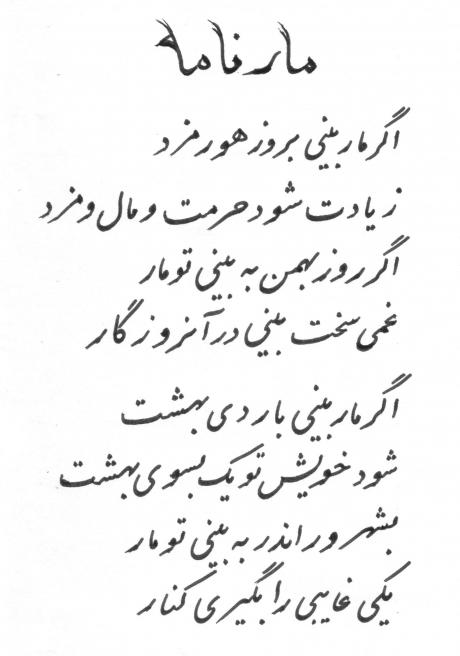 مار نامه
اگر مار بینی بروز هورمزد
زیادت شود حرمت و مال و مزد
اگر روز بهمن به بینی تو مار
غمی سخت بینی در آنروزگار
اگر مار بینی باردی بهشت
شود خویش تو یک بسوی بهشت
بشهرور اندر به بینی تو مار
یکی غایبی را بگیری کنار